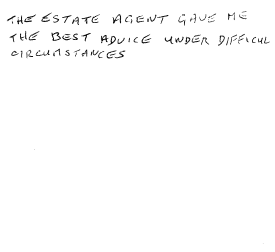 THE ESTATE AGENT GAVE ME
THE BEST ADVICE UNDER DIFFICUL
CIRCUMSTANCES